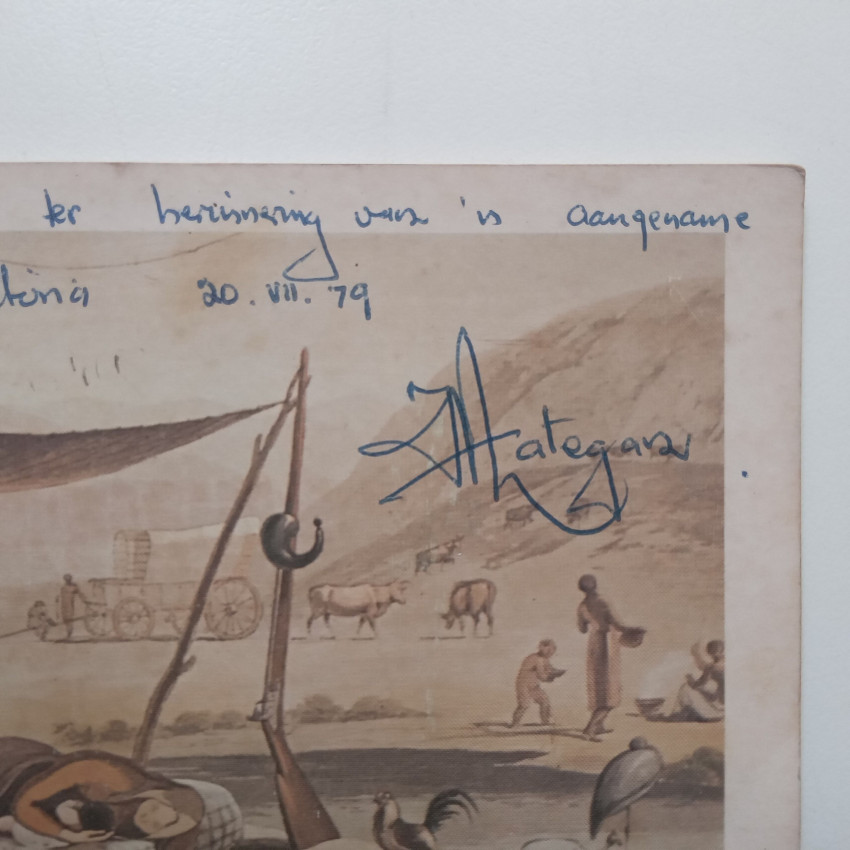 ter herinnering van 'n aangename
20. VII. '79
Kategan